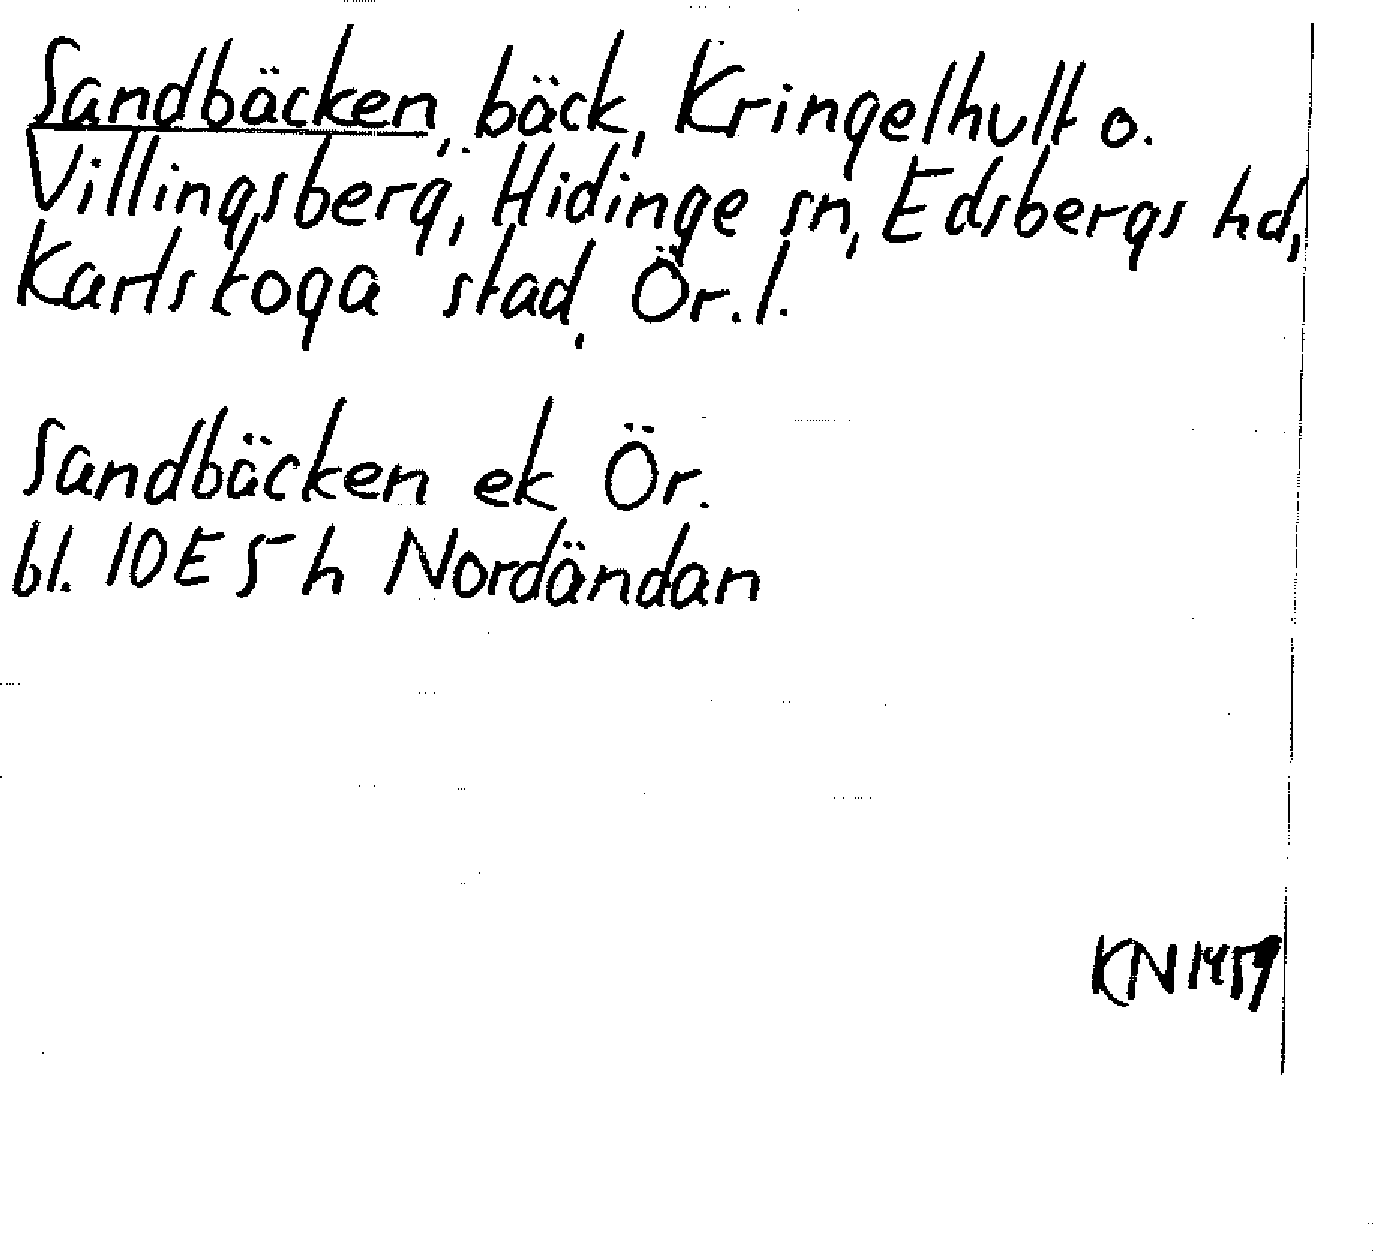 Sandbäcken, bäck, Kringelhult o.
Villingsberg, Hidinge sn, Edsbergs hd,
Karlskoga stad, Ör. l.
Sandbäcken ek Ör.
bl. 10E 5h Nordändan
KN 1459